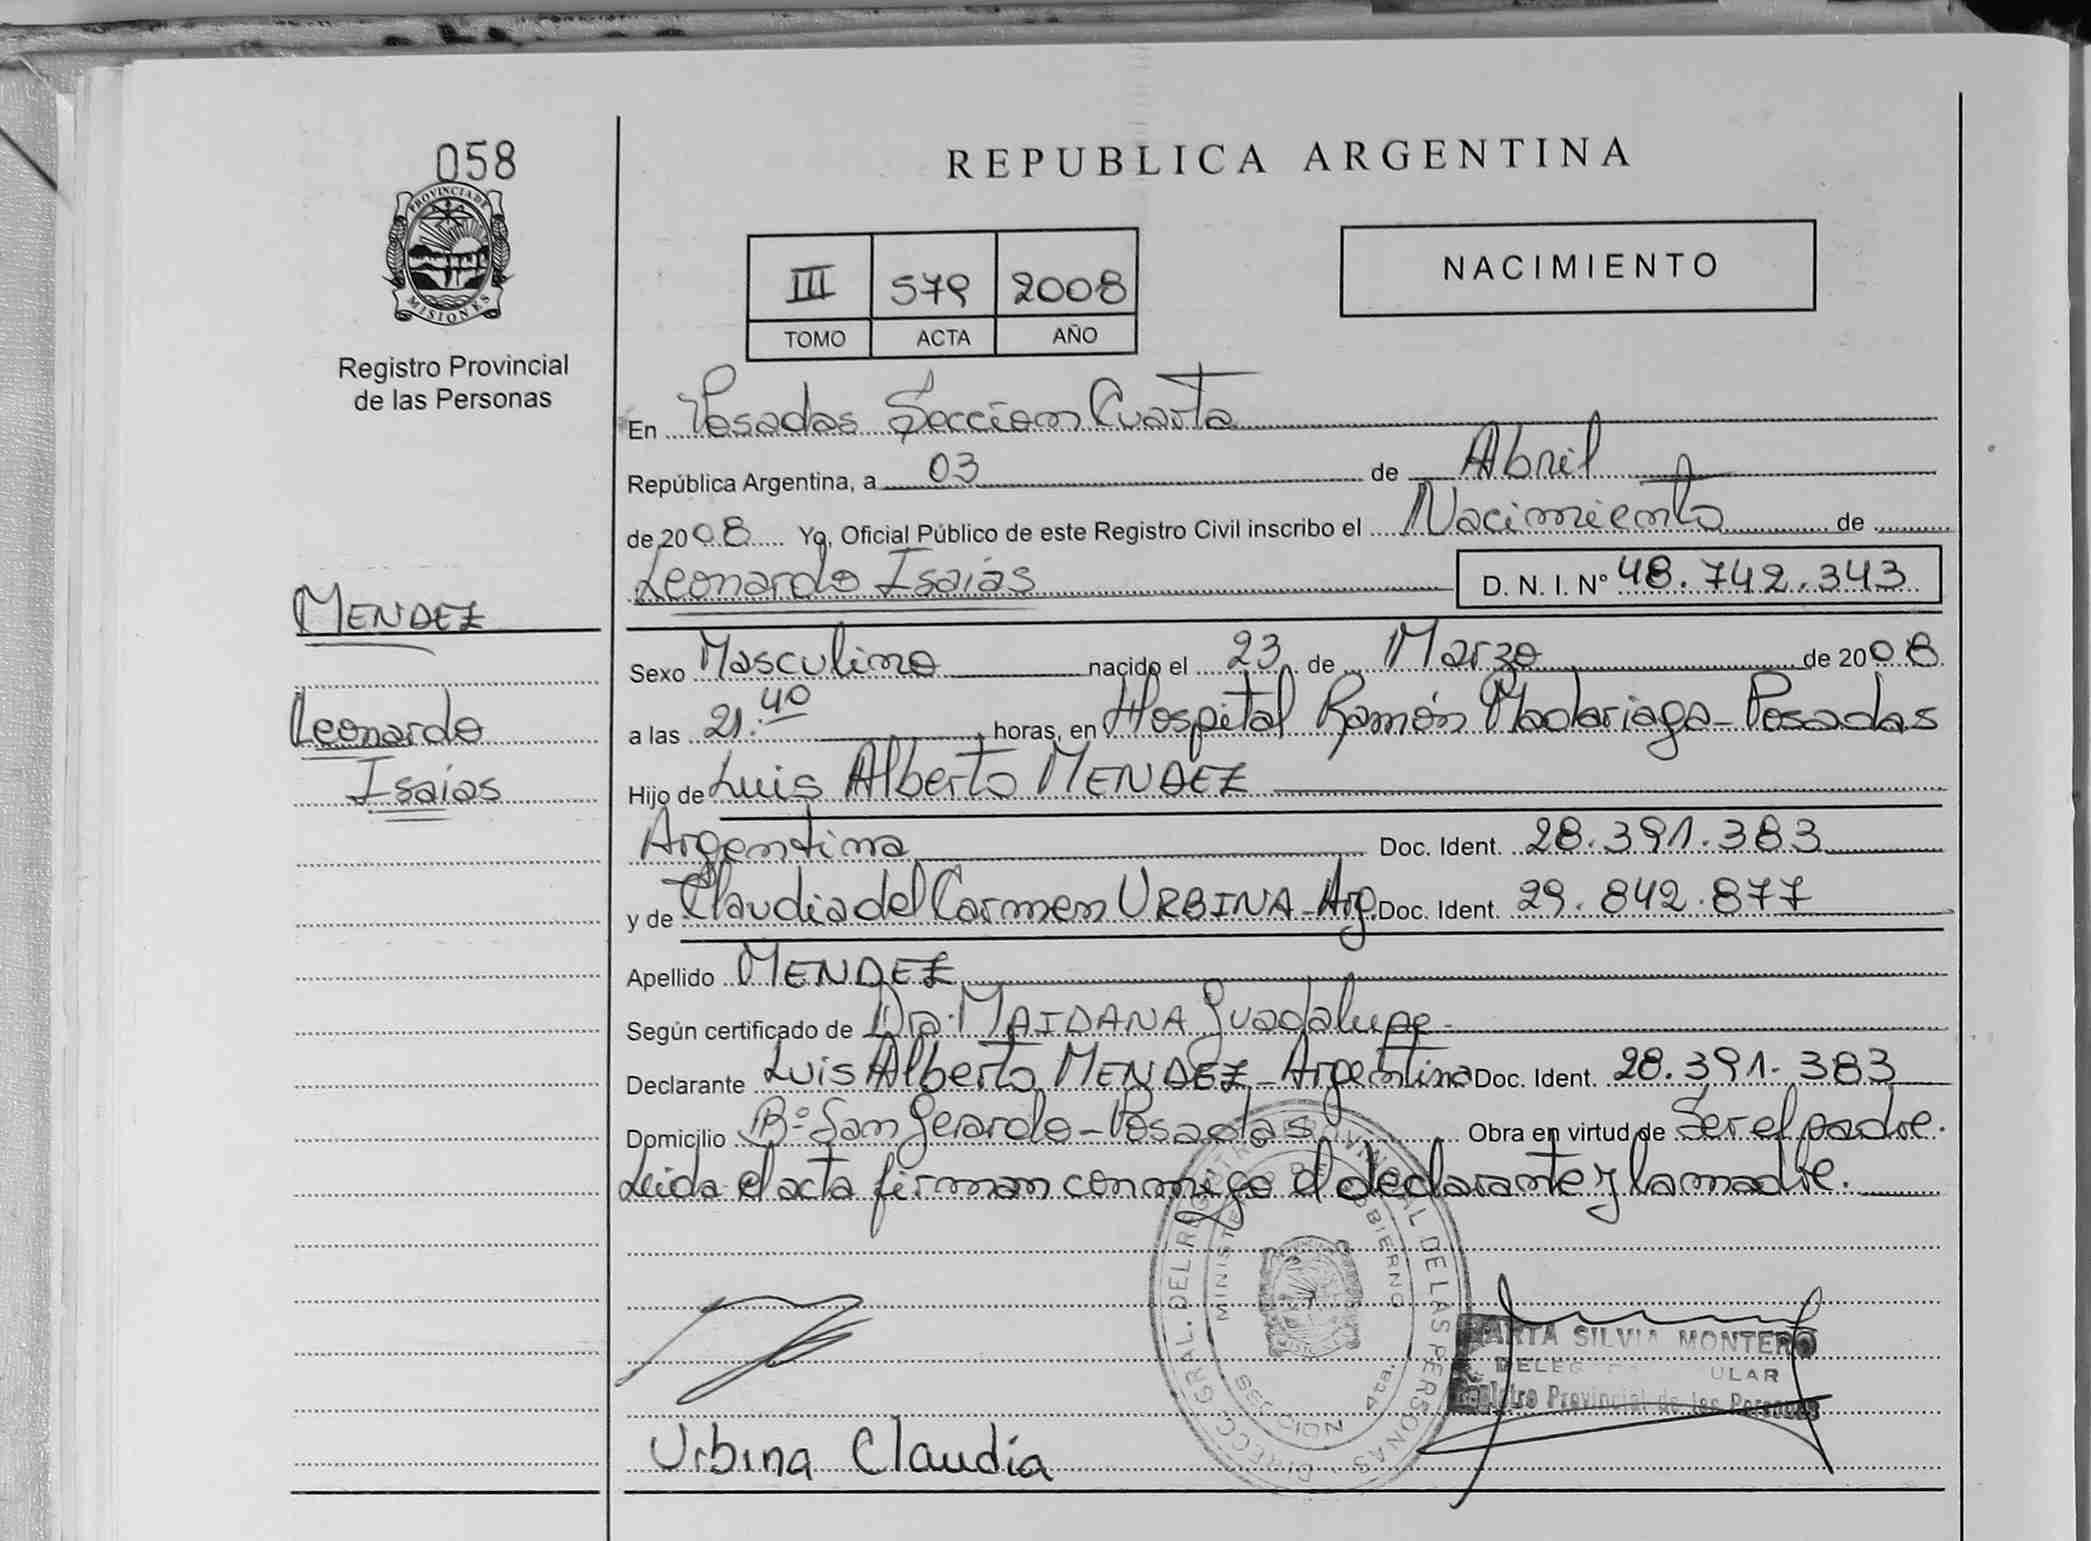 058
PROVINCIA DE
MISIONES
Registro Provincial
de las Personas
REPUBLICA ARGENTINA
III 579 2008
TOMO ACTA AÑO
NACIMIENTO
En Posadas Seccion Cuarta
República Argentina, a 03 de Abril
de 2008 Yo, Oficial Público de este Registro Civil inscribo el Nacimiento de
Leonardo Isaías D. N. I. Nº 48.742.343
MENDEZ
Leonardo
Isaías
Sexo Masculino nacido el 23 de Marzo de 2008
a las 21:40 horas, en Hospital Ramón Madariaga - Posadas
Hijo de Luis Alberto MENDEZ
Argentina Doc. Ident. 28.391.383
y de Claudia del Carmen URBINA - Arg Doc. Ident. 29.842.877
Apellido MENDEZ
Según certificado de Dra. MAIDANA Guadalupe
Declarante Luis Alberto MENDEZ - Argentina Doc. Ident. 28.391.383
Domicilio Bº San Gerardo - Posadas Obra en virtud de Ser el padre.
Leida el acta firman conmigo el declarante y la madre.
DIRECC. GRAL. DEL REGISTRO PROVINCIAL DE LAS PERSONAS
MINISTERIO DE GOBIERNO
SECCION 4ta.
SILVIA MONTERO
Registro Provincial de las Personas
Urbina Claudia